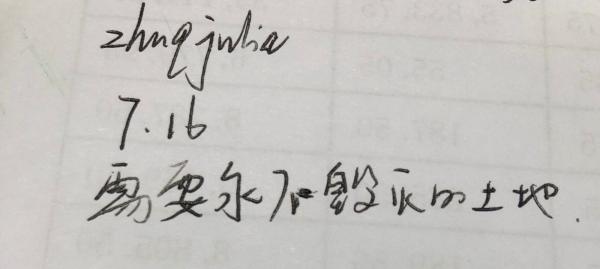 zhuqjulia
7.16
需要永不毁灭的土地.